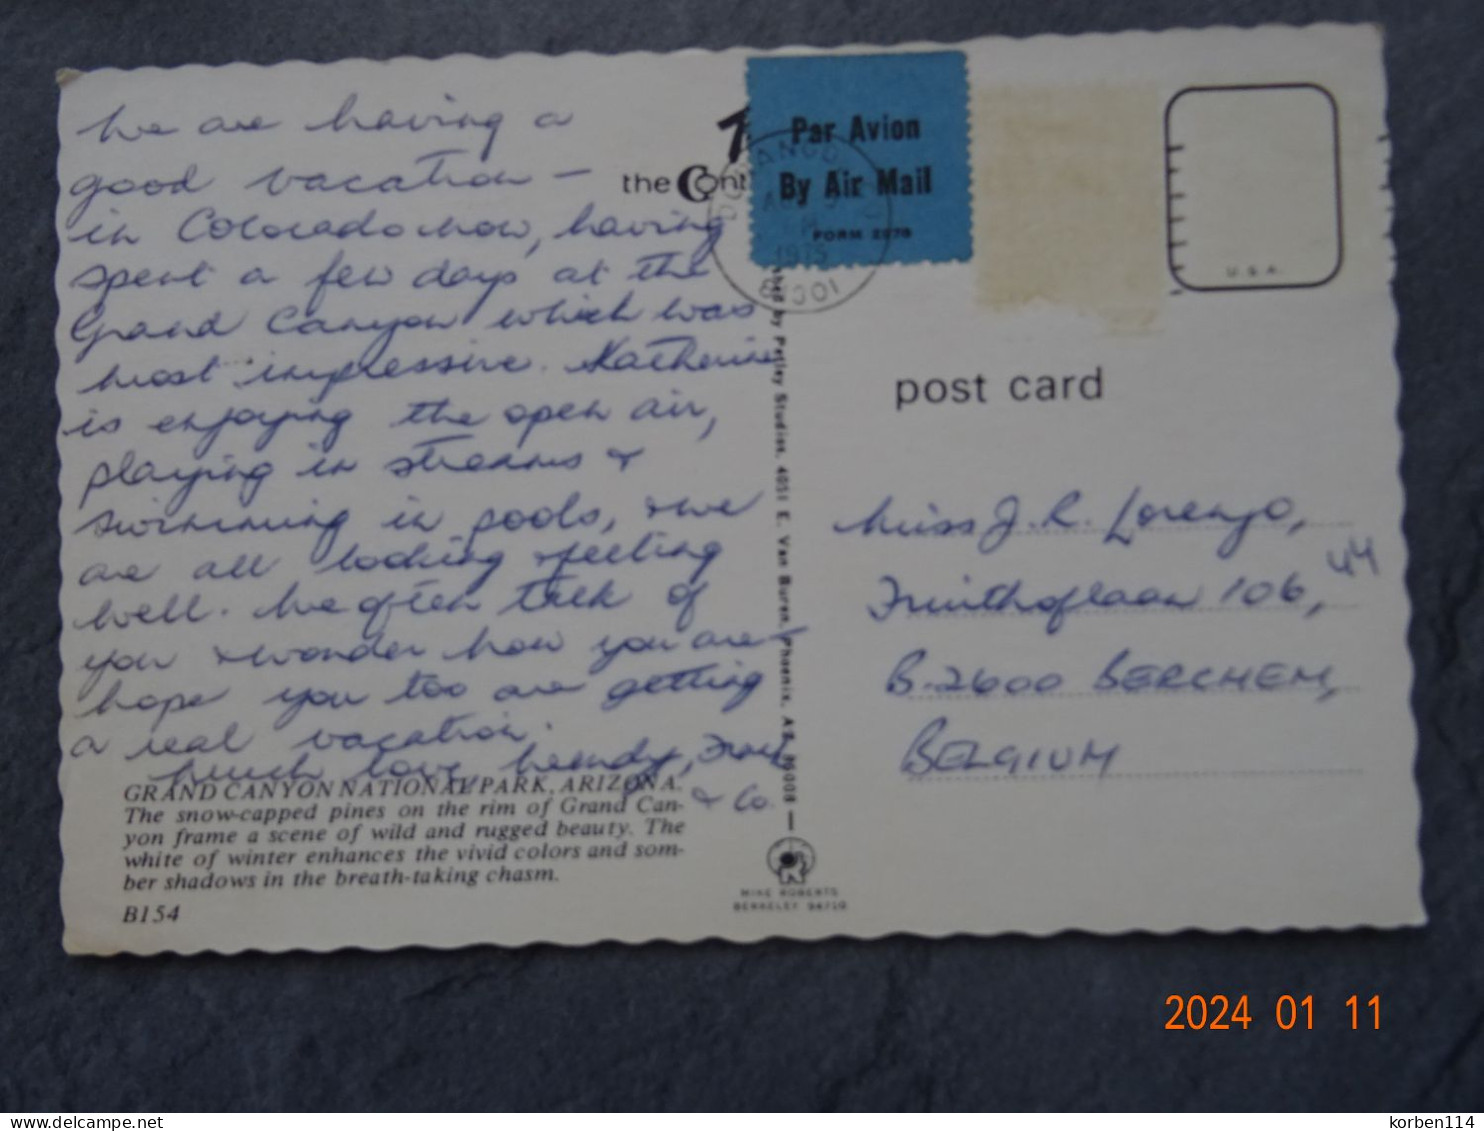 We are having a
good vacation —
in Colorado now, having
spent a few days at the
Grand Canyon which was
most impressive. Katherine
is enjoying the open air,
playing in streams &
swimming in pools, & we
are all looking & feeling
well. We often talk of
you & wonder how you are —
hope you too are getting
a real vacation.
Much love,
& Co.
GRAND CANYON NATIONAL PARK, ARIZONA.
The snow-capped pines on the rim of Grand Can-
yon frame a scene of wild and rugged beauty. The
white of winter enhances the vivid colors and som-
ber shadows in the breath-taking chasm.
B154
the Cont
by Petley Studios, 4051 E. Van Buren, Phoenix, AZ
MIKE ROBERTS
BERKELEY 94710
Par Avion
By Air Mail
FORM 2978
DURANGO
1975
81301
U.S.A.
post card
Miss J. R. Lorenzo,
106, 44
B-2600 BERCHEM,
BELGIUM
2024 01 11
delcampe.net
korben114